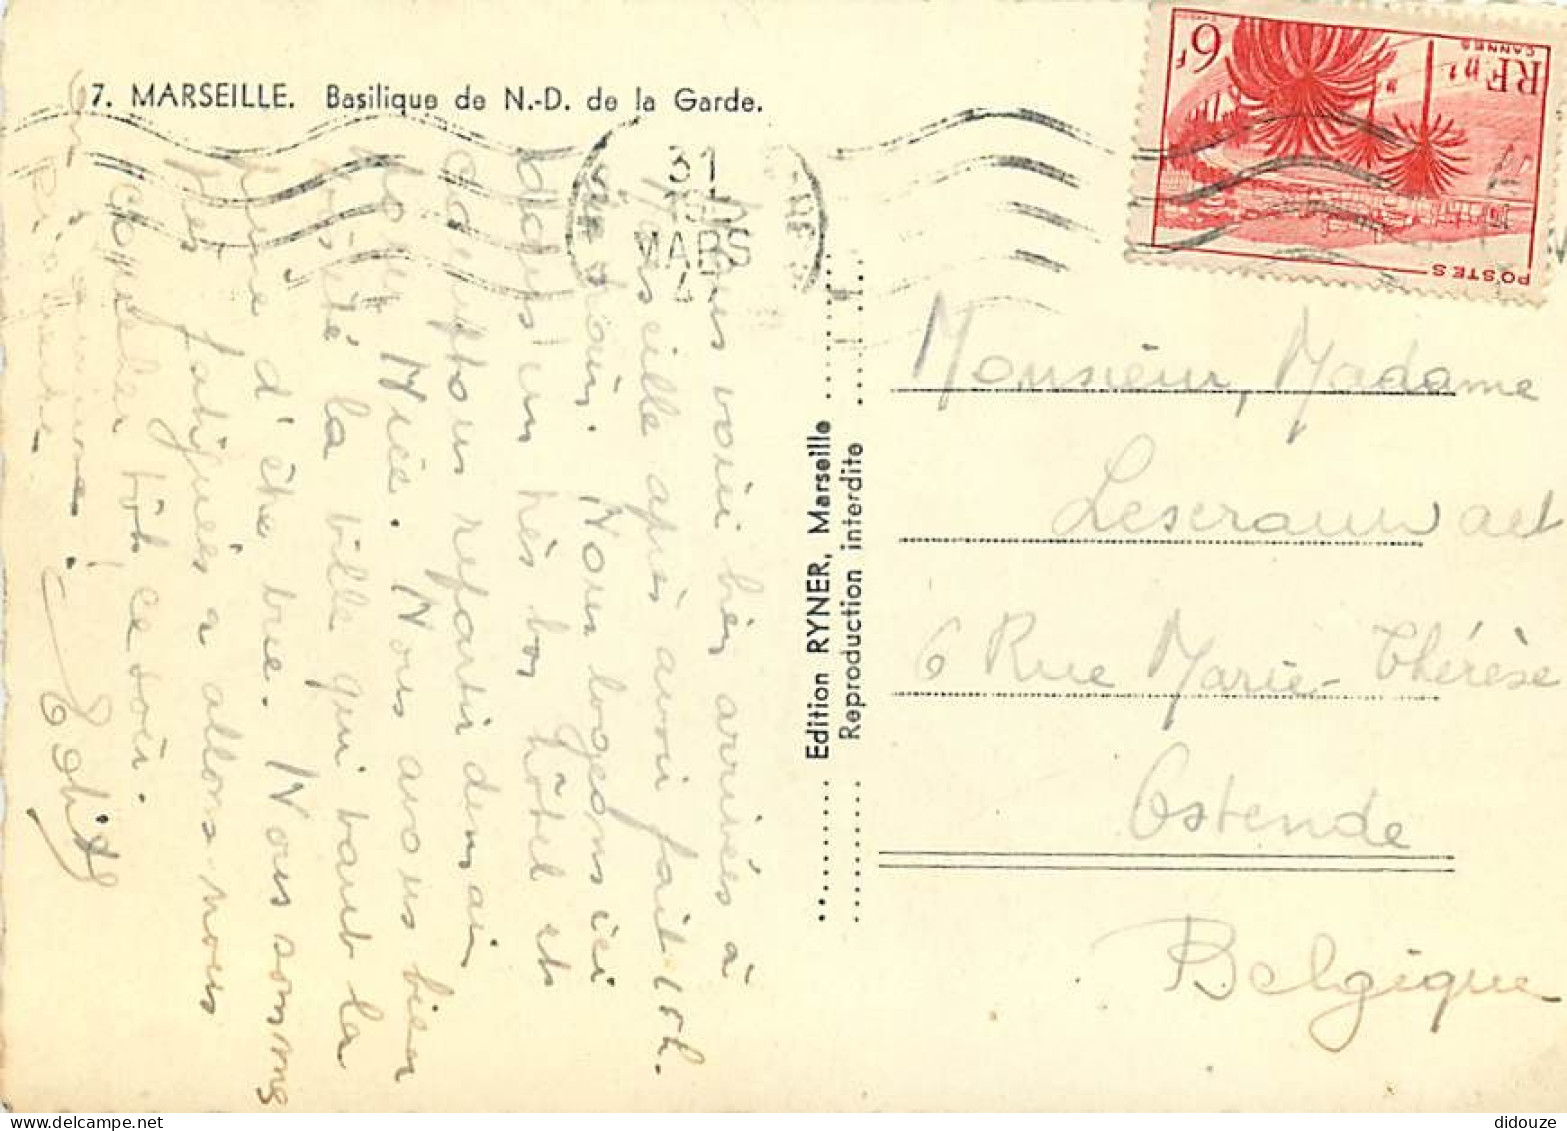 7. MARSEILLE. Basilique de N.-D. de la Garde.
31
MARS
RF
6F
CANNES
POSTES
voici bien arrivées à
Marseille après avoir fait 10h.
train. Nous logeons ici
dans un très bon hôtel et
comptons repartir demain
Nice. Nous avons bien
visité la ville qui vaut la
peine d'être vue. Nous sommes
fatiguées & allons nous
coucher tôt ce soir.
Edition RYNER, Marseille
Reproduction interdite
Monsieur, Madame
6 Rue Marie-Thérèse
Ostende
Belgique
didouze